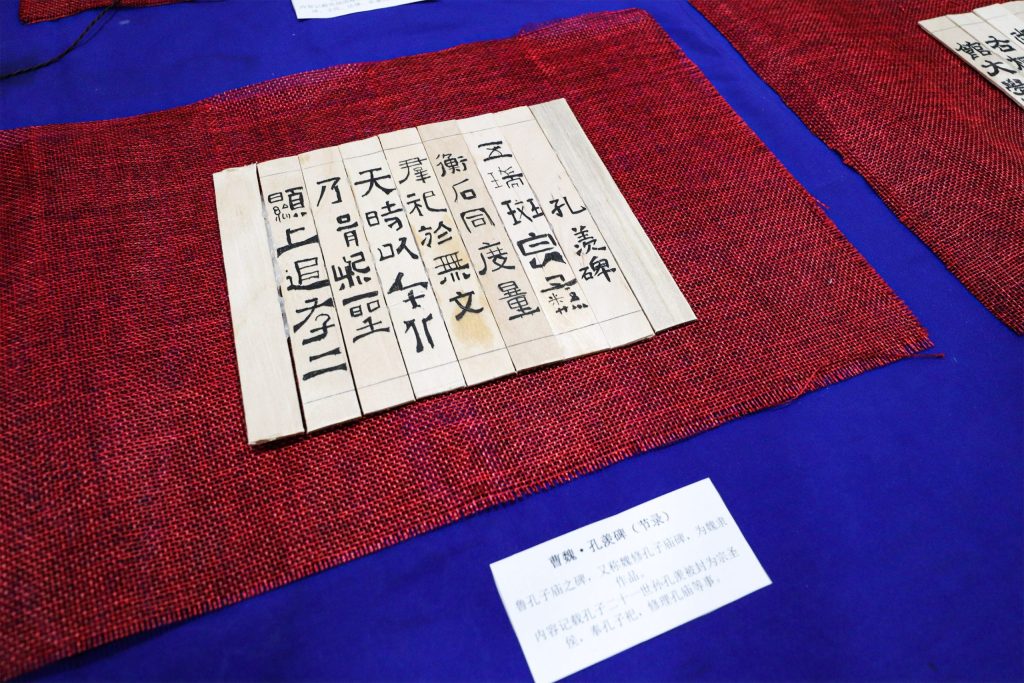 孔羨碑
五瑞斑宗彝
衡石同度量
羣祀於無文
天時以布化
乃緝熙聖
顯上追存二
曹魏·孔羡碑（节录）
鲁孔子庙之碑，又称魏修孔子庙碑，为魏隶
作品。
内容记载孔子二十一世孙孔羡被封为宗圣
侯，奉孔子祀，修理孔庙等事。
右
館大